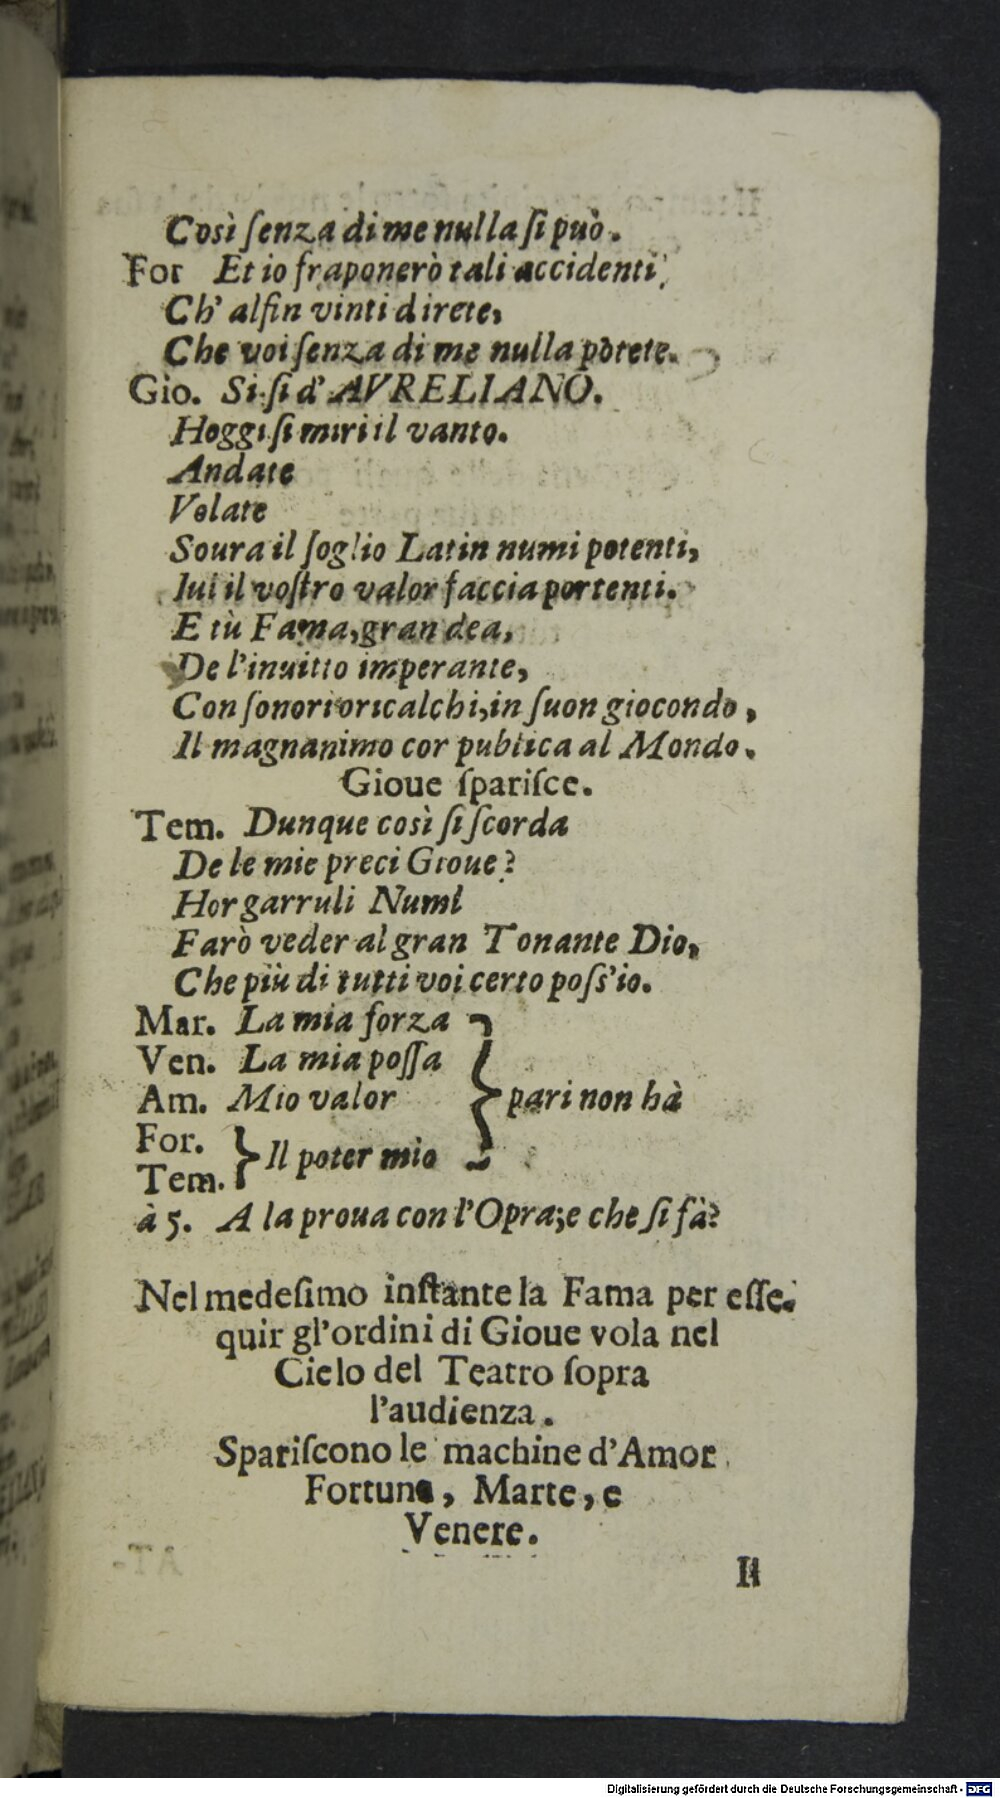 Così ſenza di me nulla ſi può.
For Et io fraponerò tali accidenti,
Ch' alfin vinti direte,
Che voi ſenza di me nulla potete.
Gio. Si ſi d' AVRELIANO.
Hoggi ſi miri il vanto.
Andate
Volate
Soura il ſoglio Latin numi potenti,
Iui il voſtro valor faccia portenti.
E tù Fama, gran dea,
De l'inuitto imperante,
Con ſonori oricalchi, in ſuon giocondo,
Il magnanimo cor publica al Mondo.
Gioue ſpariſce.
Tem. Dunque così ſi ſcorda
De le mie preci Gioue?
Hor garruli Numi
Farò veder al gran Tonante Dio,
Che più di tutti voi certo poſs'io.
Mar. La mia forza
Ven. La mia poſſa
Am. Mio valor } pari non hà
For.
Tem. } Il poter mio
à 5. A la proua con l'Opra; e che ſi fà?
Nel medeſimo inſtante la Fama per eſſe.
quir gl'ordini di Gioue vola nel
Cielo del Teatro ſopra
l'audienza.
Spariſcono le machine d'Amor
Fortuna, Marte, e
Venere.
Il
Digitalisierung gefördert durch die Deutsche Forschungsgemeinschaft - DFG